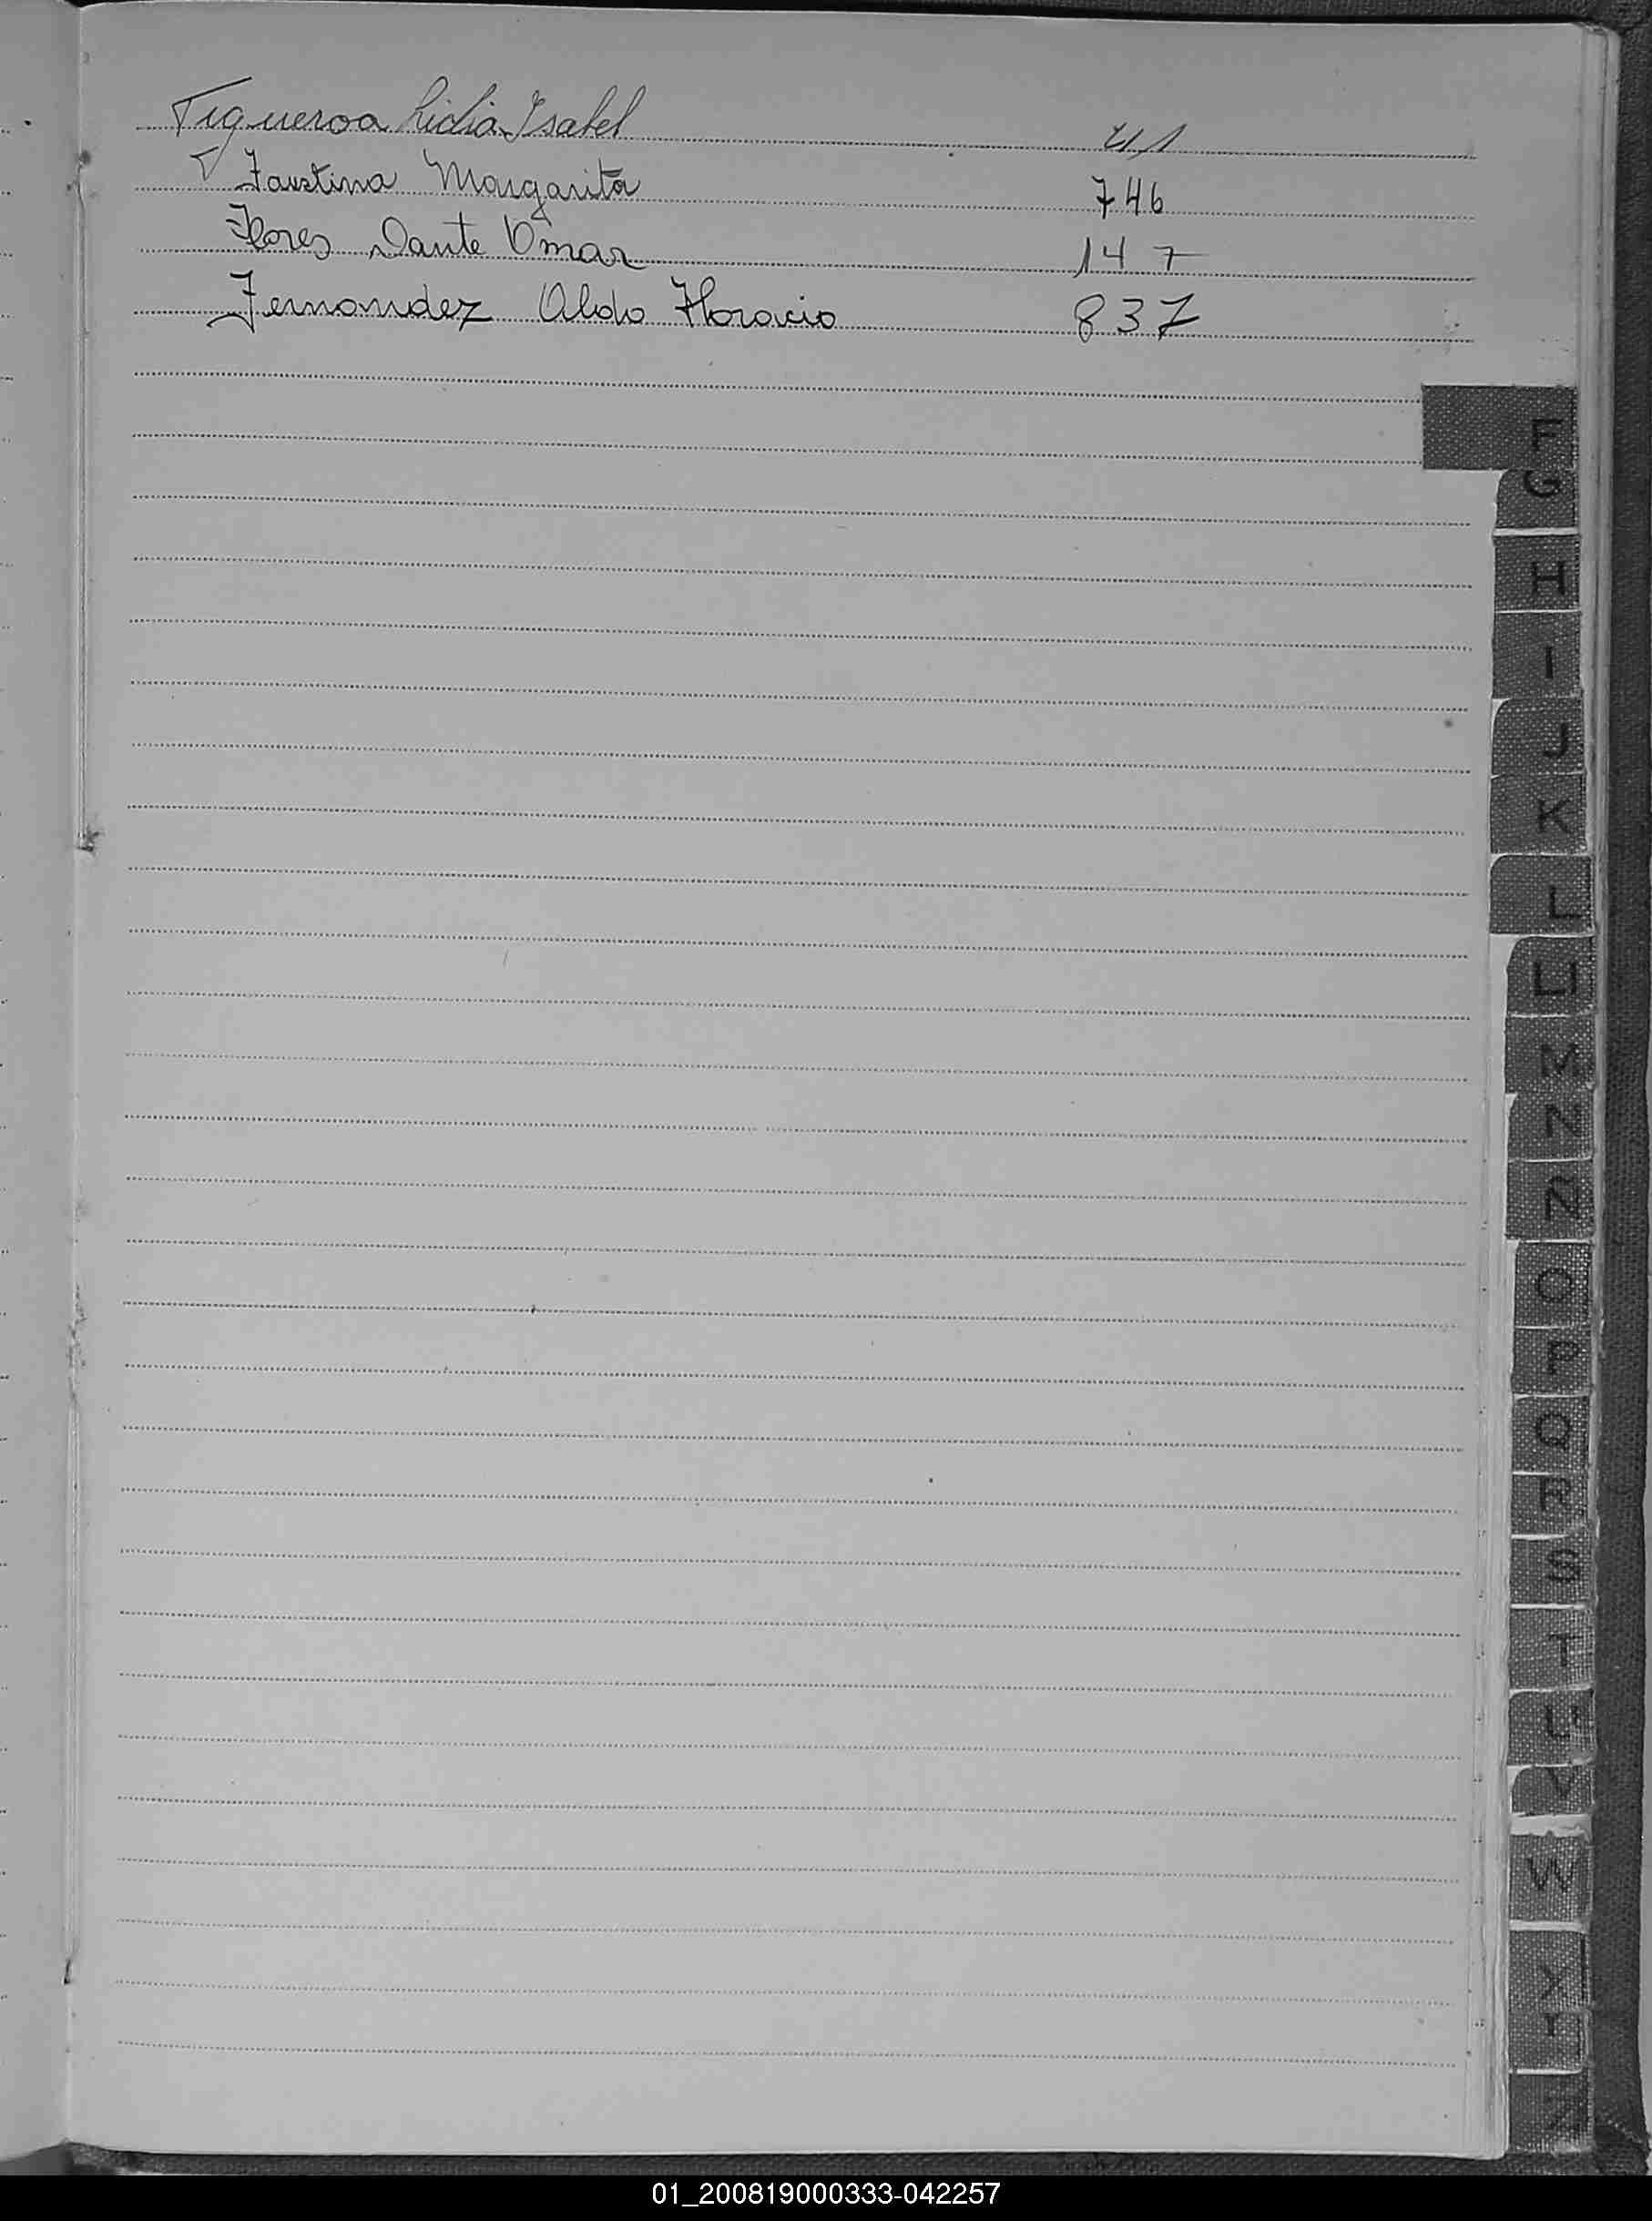 Figueroa Lidia Isabel 41
Faustina Margarita 746
Flores Dante Omar 147
Fernandez Aldo Horacio 837
F
G
H
I
J
K
L
LL
M
N
Ñ
O
P
Q
R
S
T
U
V
W
X
Y
Z
01_200819000333-042257